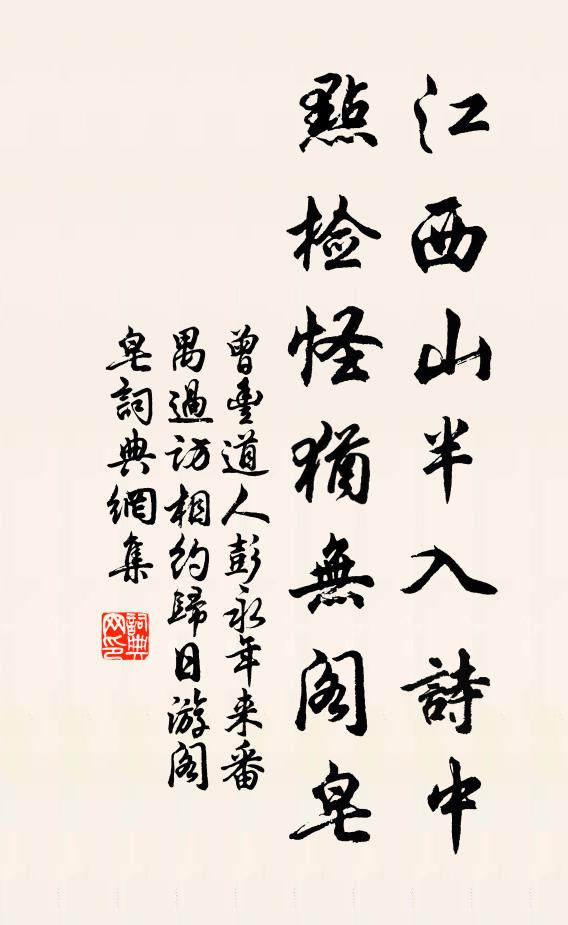 江西山半入詩中
點檢怪猶無閣皂
曾豐道人彭永年来番
禺過訪相約歸日游閣
皂詞典網集
詞典网印